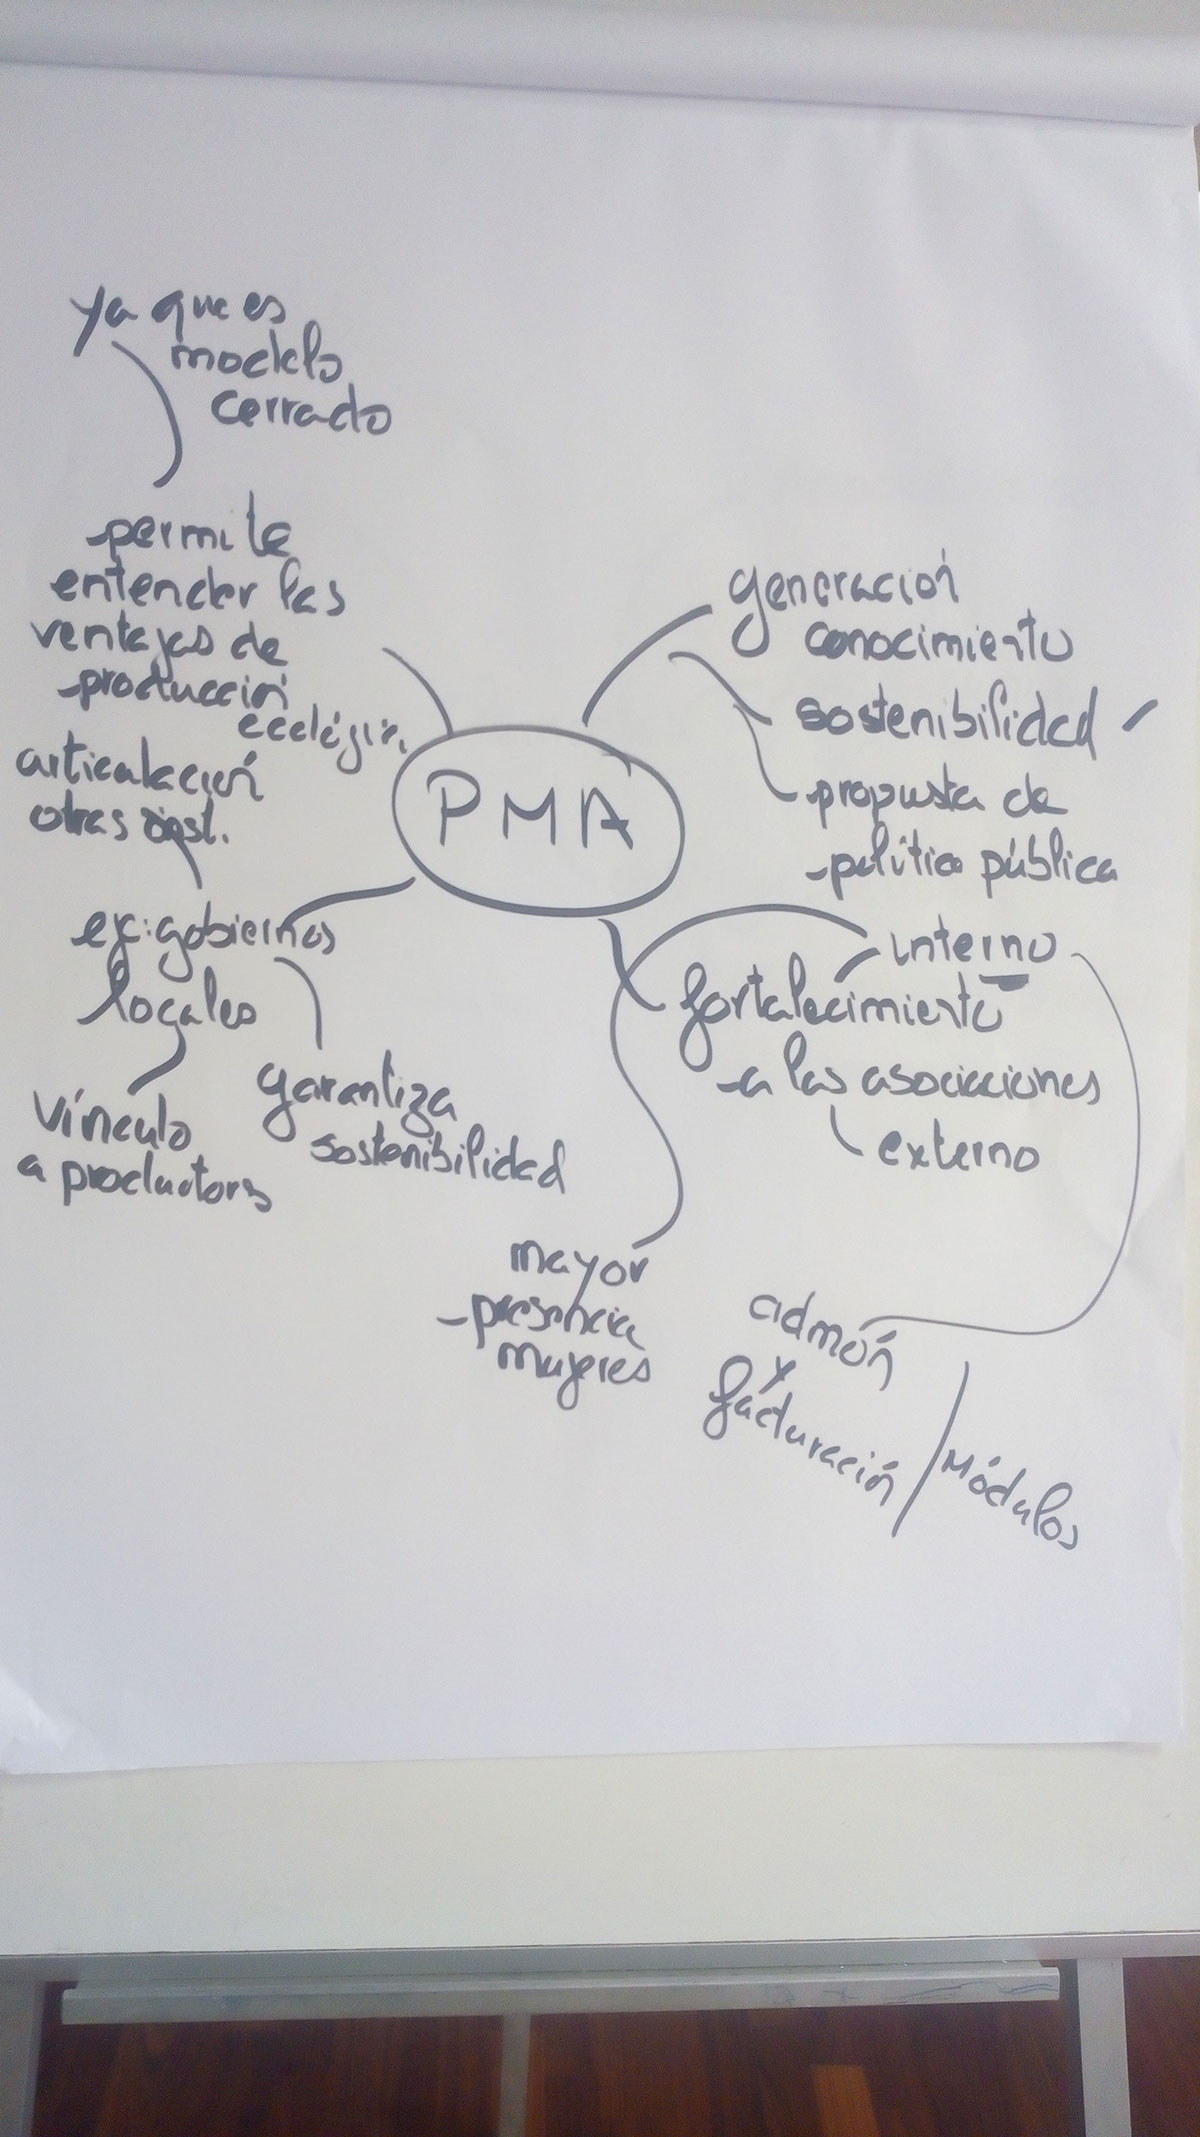 ya que es
modelo
cerrado
permite
entender las
ventajas de
producción
ecológic.
articulación
otras inst.
ej: gobiernos
locales
vínculo
a productores
garantiza
sostenibilidad
PMA
generación
conocimiento
sostenibilidad
propuesta de
política pública
interno
fortalecimiento
a las asociaciones
externo
mayor
presencia
mujeres
admón
y
facturación
Módulos